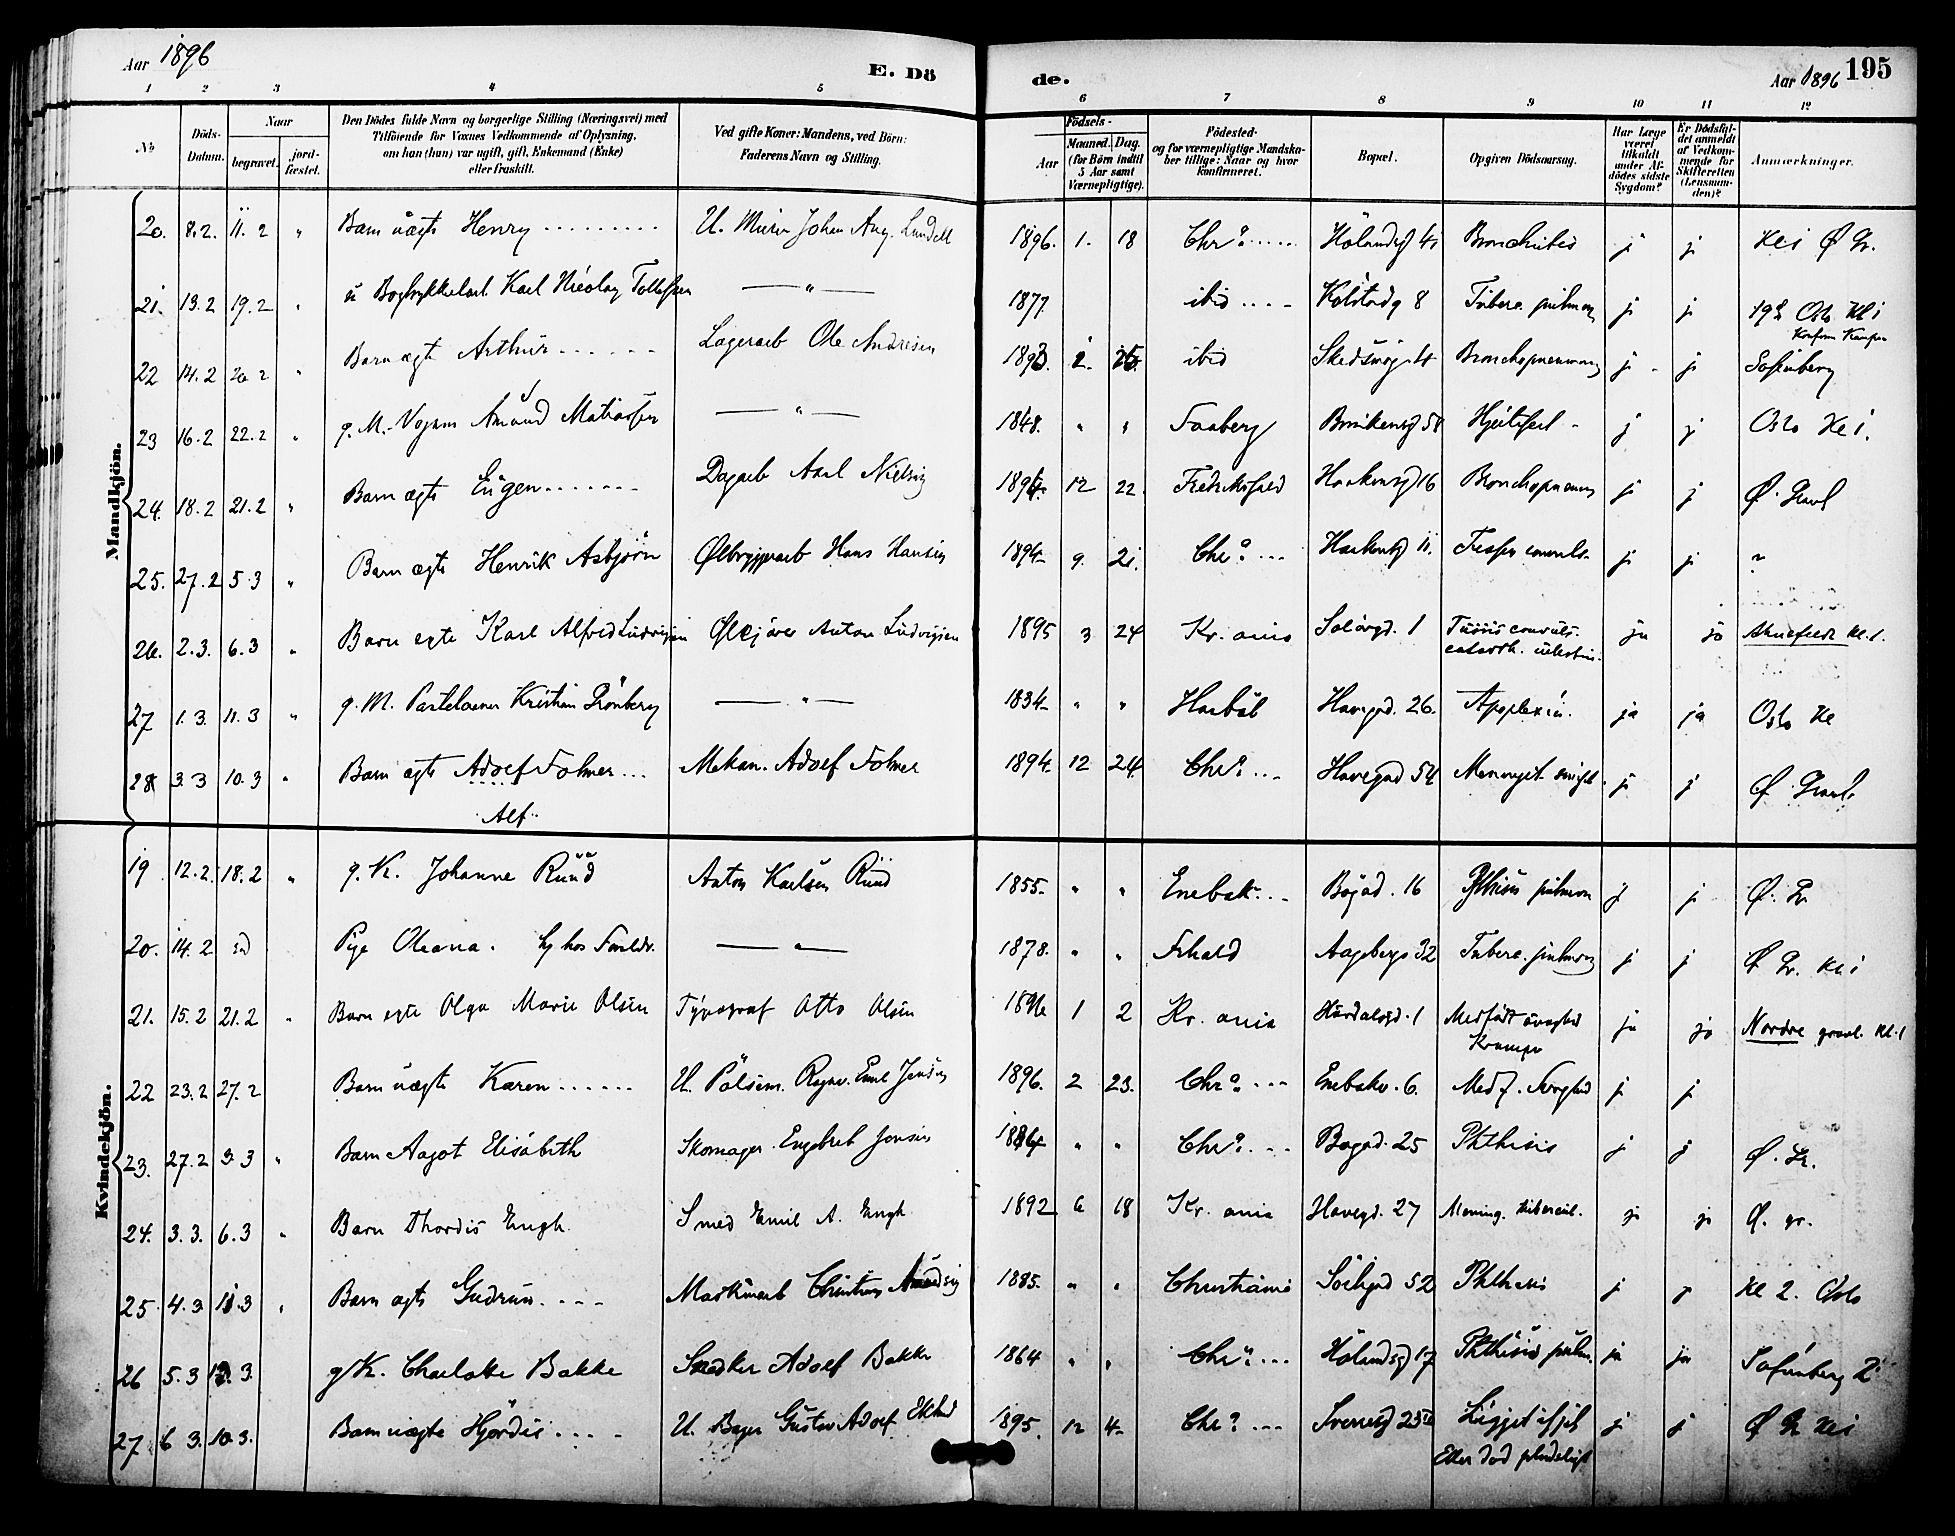 Aar 1896
E. Dö
de.
Aar 1896 195
1 2 3 4 5 6 7 8 9 10 11 12
No
Döds-Datum.
Naar
begravet.
jord-fæstet.
Den Dödes fulde Navn og borgerlige Stilling (Næringsvei) med
Tilföiende for Voxnes Vedkommende af Oplysning,
om han (hun) var ugift, gift, Enkemand (Enke)
eller fraskilt.
Ved gifte Koner: Mandens, ved Börn:
Faderens Navn og Stilling.
Födsels-
Aar
Maaned. Dag.
(for Börn indtil
5 Aar samt
Værnepligtige).
Födested
og for værnepligtige Mandska-
ber tillige: Naar og hvor
konfirmeret.
Bopæl.
Opgiven Dödsaarsag.
Har Læge
været
tilkaldt
under Af-
dödes sidste
Sygdom?
Er Dödsfal-
det anmeldt
af Vedkom-
mende for
Skifteretten
(Lensman-
den)?
Anmærkninger.
Mandkjön.
20. 8.2. 11.2 " Barn uægte Henry U. Murer Johan Aug. Lundell 1896. 1. 18 Chr.a Hölandsg 41 Bronchitis j j Kl i Ø Gr.
21. 13.2 19.2 " u Bogtrykkelærl. Karl Nicolay Tollefsen — " — 1877. ibid Kolstadg 8 Tuberc. pulmon j j 198 Oslo Kl i
Konfirm Kampen
22 14.2 20.2 " Barn ægte Arthur Lagerarb Ole Andresen 1893. 2. 25. ibid Skedsmog. 4 Bronchopneumoni j j Sofienberg
23 16.2 22.2 " g. M. Vognm Amand Matiassen — " — 1848. " " Faaberg 58 Hjertefeil j j Oslo Kl i.
24. 18.2 21.2 " Barn ægte Eugen Dagarb Axel Nielsen 12 22. Fredrikshald 16 Bronchopneum j j Ø. Gravl
25. 27.2 5.3 " Barn ægte Henrik Asbjörn Ølbryggerarb Hans Hansen 1894 9. 21. Chr.a 11. j j "
26. 2.3. 6.3 " Barn egte Karl Alfred Ludvigsen Ølkjører Anton Ludvigsen 1895 3 24 Kr. ania Solörgd. 1 Tussis convuls.
catarrh. intestin. ja ja Kl. 1.
27 1.3. 11.3 " g. M. Kristian Grönberg — " — 1834 " " Havegad. 26. Apoplexia. ja ja Oslo Kl
28 3.3 10.3 " Barn ægte Adolf Folmer Mekan. Adolf Folmer 1894. 12 24 Chr.a Havegad 54 j j Ø Gravl.
Alf
Kvindekjön.
19 12.2. 18.2 " g. K. Johanne Ruud Anton Karlsen Ruud 1855. " " Enebak Bögad. 16 Phthisis pulmon j j Ø. Gr.
20. 14.2 Pige Oleana. hj hos Foreldr. — " — 1878. " " Frhald Aagebergs 32 Tuberc. pulmon j j Ø Gr. Kl i
21. 15.2 21.2 " Barn egte Olga Marie Olsen Typograf Otto Olsen 1896 1 2 Kr. ania Hurdalsgd. 1 Medfødt svaghed
Krampe ja ja Nordre gravl. Kl. 1
22 23.2 27.2 Barn uægte Karen U. Pölsem. Ragnv. Emil Jensen 1896. 2 23. Chr.a Enebakv. 6. Medf. Svaghed j j
23. 27.2 3.3 " Barn Aagot Elisabeth Skomager Engebret Jonsen 1884 " " Chr.a Bøgad. 25 Phthisis j j Ø. Gr.
24. 3.3. 6.3 " Barn Thordis Engh. Smed Emil A. Engh 1892 6 18 Kr. ania Havegd. 27 Mening. tubercul. j j Ø. gr.
25. 4.3 11.3 " Barn ægte Gudrun Maskinarb Christian Amundsen 1885. " " Christiania Sörligad 52 Phthisis j j Kl 2. Oslo
26 5.3 12.3. g K. Charlotte Bakke Snedker Adolf Bakke 1864 " " Chr.a Hölandsg 17 Phthisis pulm. ja ja Sofienberg
27 6.3. 10.3. Barn uægte Hjördis U. Bager Gustav Adolf 1895. 12 4. Chr.a Sverresg Ligget ihjel
Eller død pludseligt j j Ø Gr Kl i